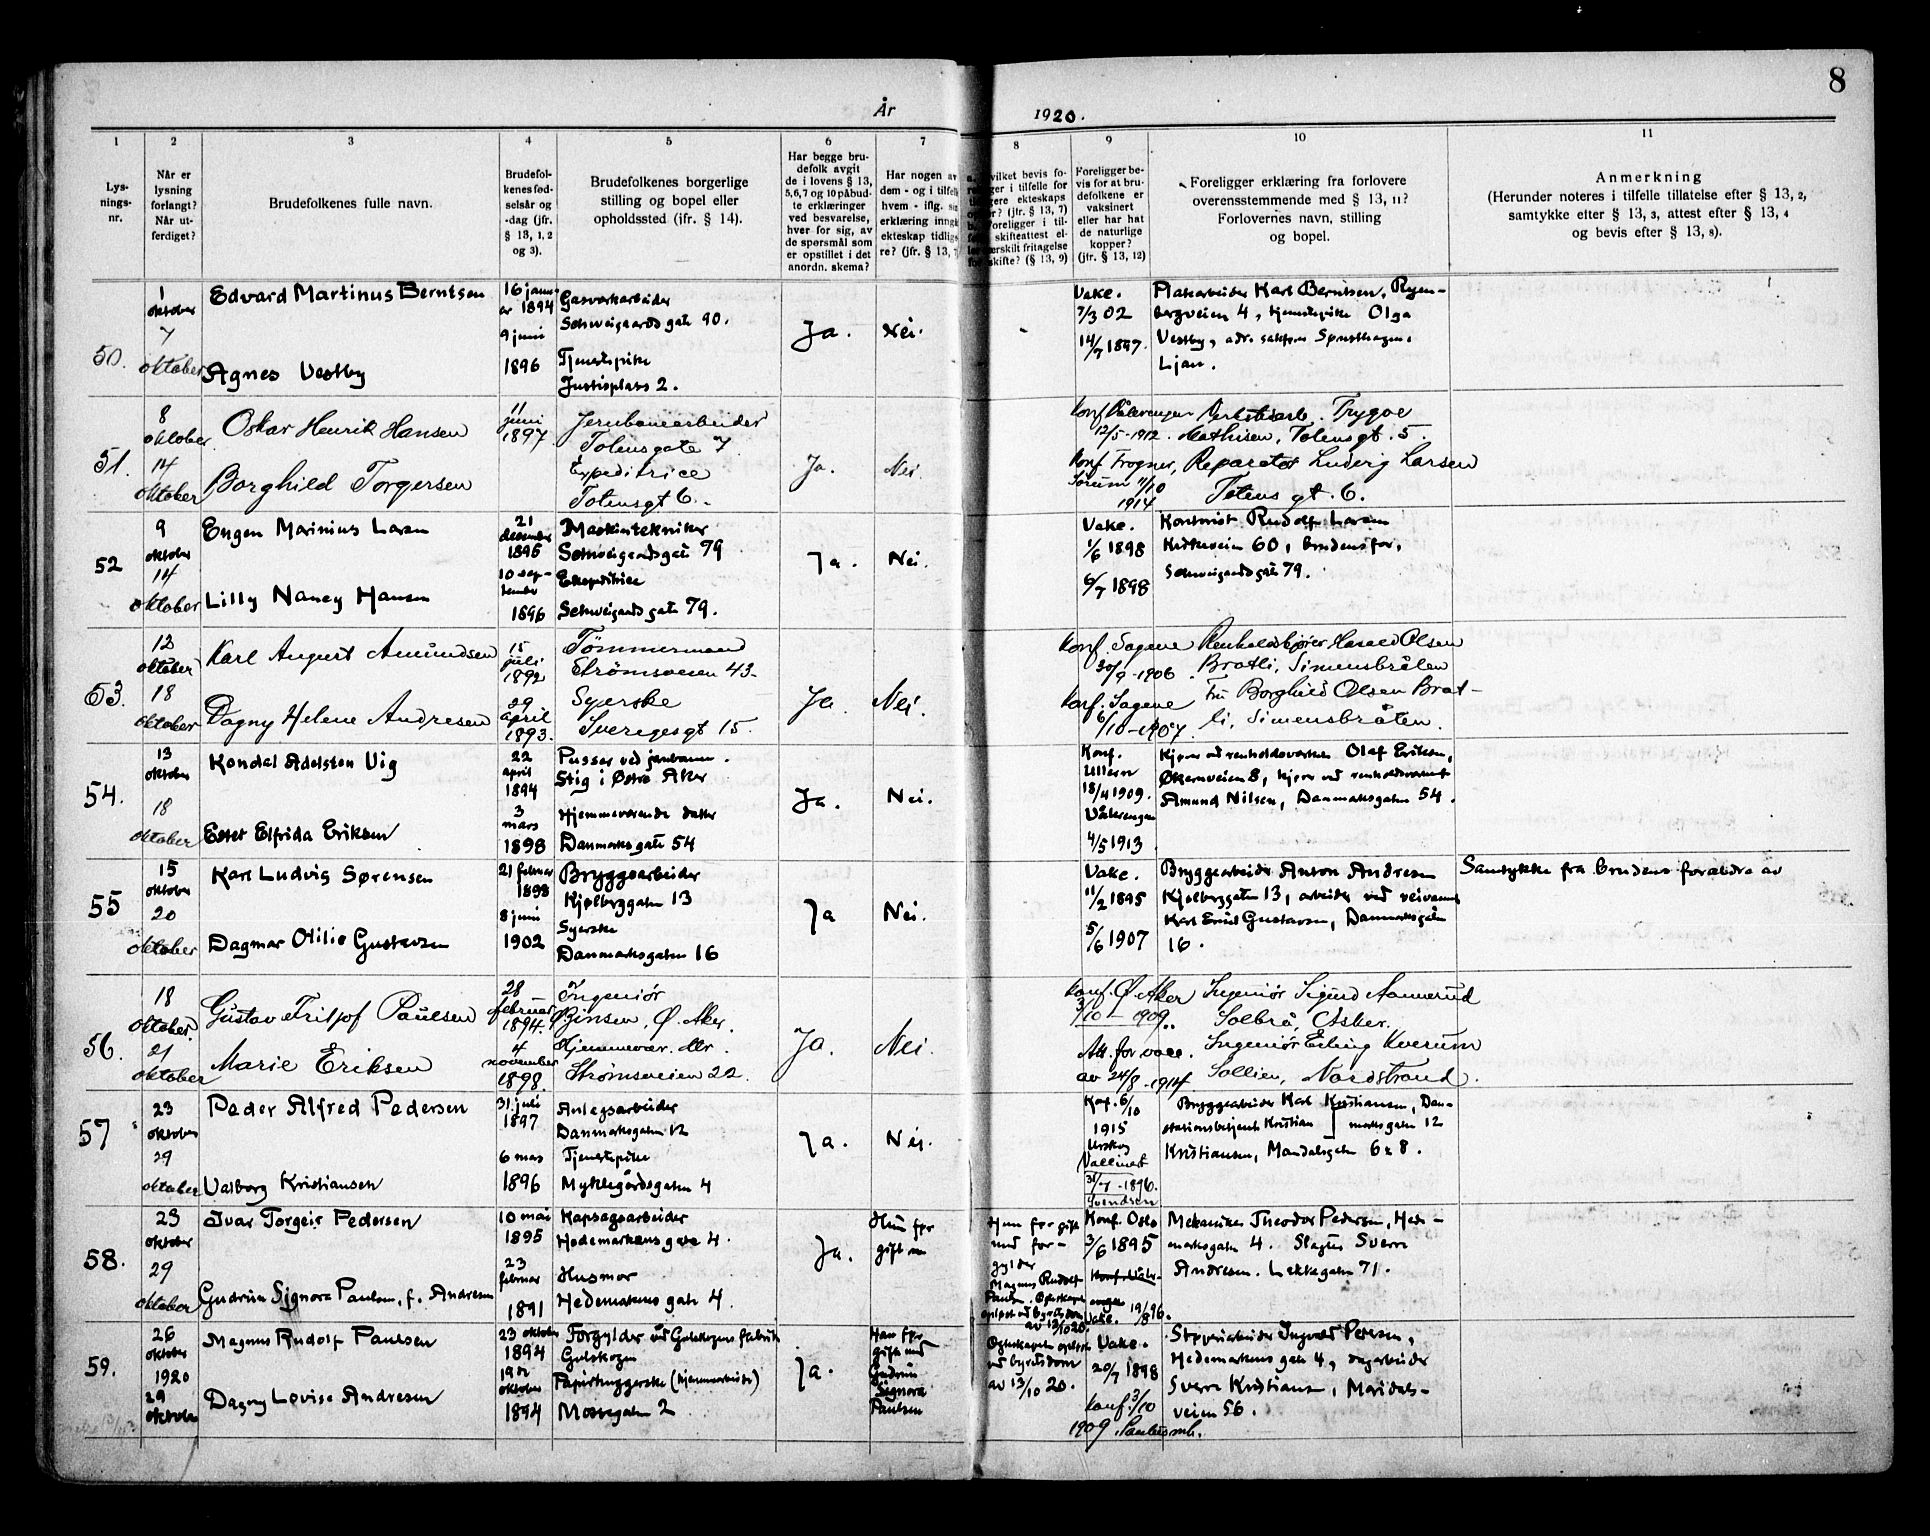 8
År 1920.
1 2 3 4 5 6 7 8 9 10 11
Lys-
nings-
nr.
Når er
lysning
forlangt?
Når ut-
ferdiget?
Brudefolkenes fulle navn.
Brudefol-
kenes fød-
selsår og
-dag (jfr.
§ 13, 1, 2
og 3).
Brudefolkenes borgerlige
stilling og bopel eller
opholdssted (ifr. § 14).
Har begge bru-
defolk avgit
de i lovens § 13,
5,6,7 og 10 påbud-
te erklæringer
ved besvarelse,
hver for sig, av
de spørsmål som
er opstillet i det
anordn. skema?
Har nogen av
dem - og i tilfelle
hvem - iflg.
erklæring inngå
ekteskap tidlige-
re? (jfr. § 13, 7
vilket bevis fo-
ger i tilfelle for
gere ekteskaps
? (jfr. § 13, 7)
oreligger i til-
skifteattest el-
ærskilt fritagelse
skifte? (§ 13, 9)
Foreligger be-
vis for at bru-
defolkene er
vaksinert
eller har hat
de naturlige
kopper?
(jfr. § 13, 12)
Foreligger erklæring fra forlovere
overensstemmende med § 13, 11?
Forlovernes navn, stilling
og bopel.
Anmerkning
(Herunder noteres i tilfelle tillatelse efter § 13, 2,
samtykke efter § 13, 3, attest efter § 13, 4
og bevis efter § 13, 8).
50.
1
oktober
7
oktober
Edvard Martinus Berntsen
Agnes Vestby
16 janu-
ar 1894
9 juni
1896
Gasverkarbeider
Schweigaards gate 90.
Tjenestepike
Justisplass 2.
Ja.
Nei.
Vakc.
7/3 02
14/7 1897.
Platearbeider Karl Berntsen, Ryen-
bergveien 4, tjenestepike Olga
Vestby, adr.
Ljan.
51.
8
oktober
14
oktober
Oskar Henrik Hansen
Borghild Torgersen
11
juni
1897
Jernbanearbeider
Totensgate 7
Expeditrice
Totensgt 6.
Ja.
Nei.
Konf. Vålerengen
12/5-1912.
Konf. Frogner,
Sørum 11/10
1914
Verkstedarb. Trygve
Mathisen, Totensgt. 5.
Reparatør Ludvig Larsen
Totens gt. 6.
52
9
oktober
14
oktober
Eugen Marinius Larsen
Lilly Nancy Hansen
21
desember
1895
10 sep-
tember
1896
Maskintekniker
Schweigaardsgate 79
Ekspeditrice
Schweigaards gate 79.
Ja.
Nei.
Vakc.
1/6 1898
6/7 1898
Kontorist Rudolf Larsen
Kirkeveien 60, brudens far,
Schweigaardsgate 79.
53.
12
oktober
18
oktober
Karl August Amundsen
Dagny Helene Andresen
15
juli
1892
29
april
1893.
Tømmermand
Strømsveien 43.
Syerske
Sverigesgt 15.
Ja.
Nei.
Konf. Sagene
30/9-1906.
Konf. Sagene
6/10-1907
Renholdsbjører Harald Olsen
Bratli, Simensbråten
Fru Borghild Olsen Brat-
li, Simensbråten.
54.
13
oktober
18
oktober
Kondal Adelsten Vig
Ester Elfrida Eriksen
22
april
1894
3
mars
1898
Pusser ved jernbanen.
Stig i Østre Aker
Hjemmeværende datter
Danmarks gate 54
Ja.
Nei.
Konf.
Ullern
18/4 1909.
Vålerengen
4/5 1913
Kjører ved renholdsverket Olaf Eriksen,
Økernveien 8, kjører ved renholdsverket
Amund Nilsen, Danmarksgaten 54.
55
15
oktober
20
oktober
Karl Ludvig Sørensen
Dagmar Otilie Gustavsen
21 februar
1893
8 juni
1902
Bryggearbeider
Kjølberggaten 13
Syerske
Danmarksgaten 16
Ja
Nei.
Vakc.
11/2 1895
5/6 1907
Bryggearbeider Anton Andresen
Kjølberggaten 13, arbeider ved veivesenet
Karl Emil Gustavsen, Danmarksgaten
16.
Samtykke fra brudens forældre av
56.
18
oktober.
21
oktober
Gustav Fritjof Paulsen
Marie Eriksen
28
februar
1894.
4
november
1898.
Ingeniør
Ø. Aker.
Hjemmevær. dtr.
Strømsveien 22.
Ja.
Nei.
Konf. Ø. Aker
3/10 - 1909.
Att. for vacc.
av 24/8-1914
Ingeniør Sigurd Aamerud
Solbrå, Asker.
Ingeniør Erling Kverum
Sollien, Nordstrand.
57
23
oktober
29
oktober
Peder Alfred Pedersen
Valborg Kristiansen
31 juli
1897
6 mars
1896
Anlegsarbeider
Danmarksgaten 12
Tjenestepike
Myklegårdsgaten 4
Ja.
Nei.
Konf. 6/10
1915
Urskog
Vallinat
31/7-1896.
Svendsen
Bryggearbeider Karl Kristiansen, Dan-
marksgaten 12
stationsbetjent Kristian
Kristiansen, Mandalsgaten 6 & 8.
58.
23
oktober
29
oktober
Ivar Torgeir Pedersen
Gudrun Signora Paulsen, f. Andresen
10 mai
1895
23
februar
1891
Kapsagearbeider
Hedemarkens gate 4.
Husmor
Hedemarkens gate 4.
Ja.
Hun før
gift
Hun før gift
med for-
gylder
Magnus Rudolf
Paulsen. Ekteskapet
opløst ved byretsdom
av 13/10 20.
Konf. Oslo
3/6 1895
Konf. Våle-
engen
Vakc. 19/8 96.
Mekaniker Theodor Pedersen, Hede-
marksgaten 4. Slagter Sverre
Andresen. Lakkegaten 71.
59.
26
oktober
1920
29
oktober
Magnus Rudolf Paulsen
Dagny Lovise Andresen
23 oktober
1894
oktober
1894
Forgylder ved Gulskogens fabrik
Gulskogen
Papirhuggerske (hjemmearbeide)
Mossegaten 2
Ja.
Han før
gift med
Gudrun
Signora
Paulsen
Ogteskapet opløst
ved byretsdom
av 13/10 20.
Vakc.
20/7 1898
Konf. 3/10
1909 Paulus mh.
Støperiarbeider Ingvald Petersen,
Hedemarkens gate 4, dagarbeider
Sverre Kristiansen, Maridals-
veien 56.